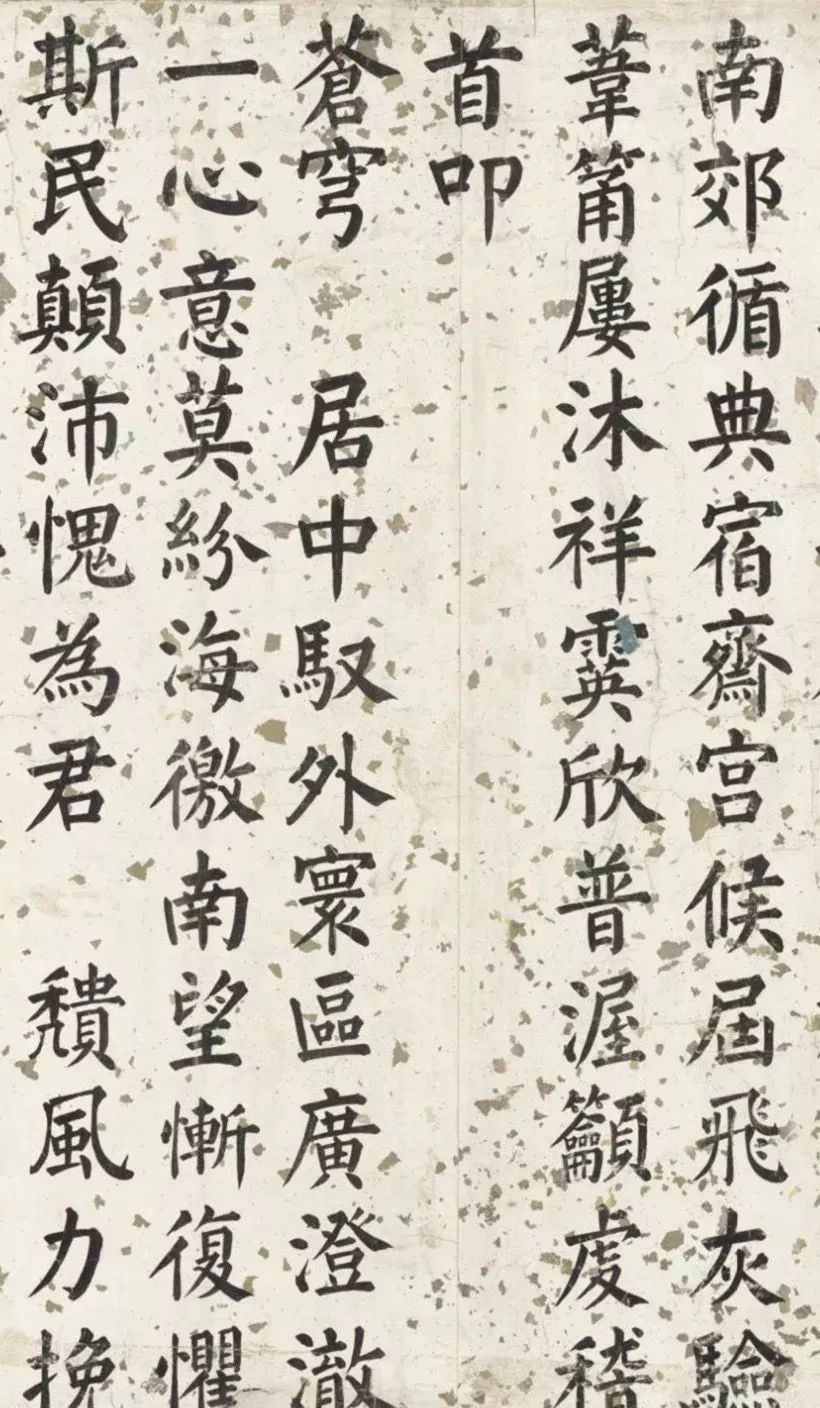 南郊循典宿齋宮候屆飛灰驗
葦籥屢沐祥霙欣普渥籲虔稽
首叩
蒼穹 居中馭外寰區廣澄澈
一心意莫紛海徼南望慚復懼
斯民顛沛愧為君 穨風力挽